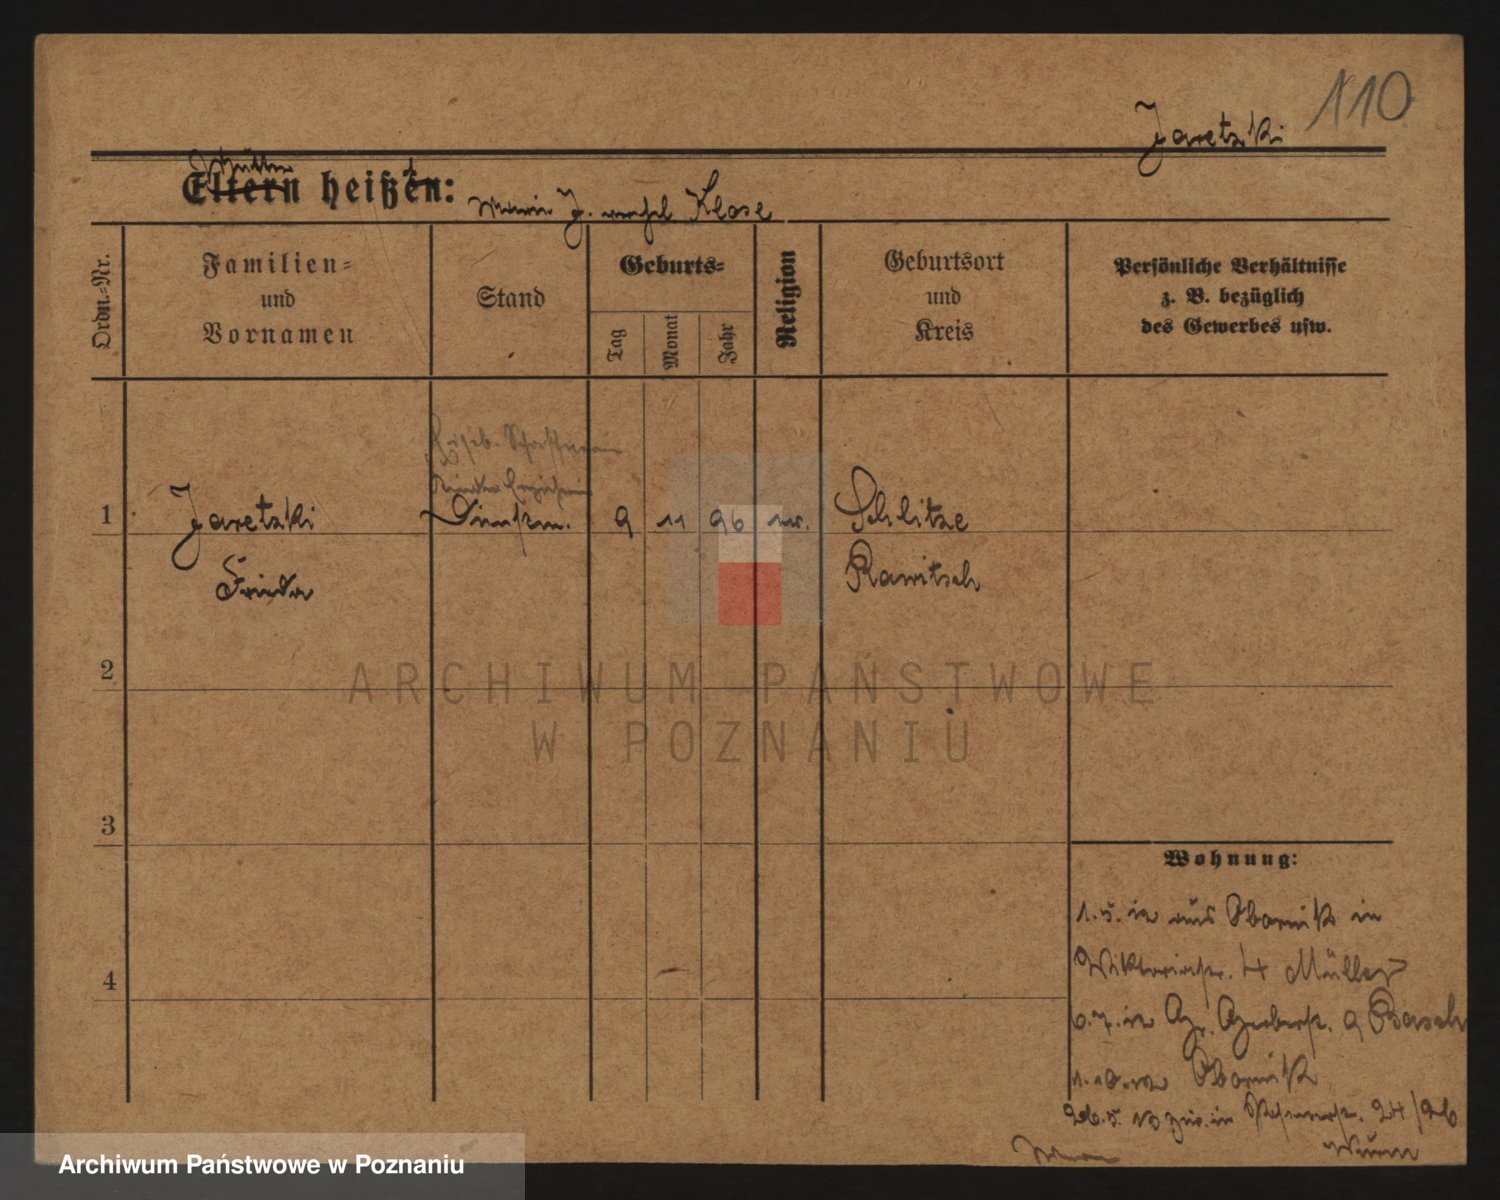 110
Jaretzki
Mutter
Eltern heißen:
Maria J. verehel. Klose
Ordn.-Nr.
Familien-
und
Vornamen
Stand
Geburts-
Tag
Monat
Jahr
Religion
Geburtsort
und
Kreis
Persönliche Verhältnisse
z. B. bezüglich
des Gewerbes usw.
1
Jaretzki
Dienstm.
9
11
96
ev.
Schlitze
Frieda
Rawitsch
2
ARCHIWUM PAŃSTWOWE
W POZNANIU
3
Wohnung:
1.5.12 aus Obornik in
Viktoriastr. 4 Müller
4
6.7.12 Gr. Gerberstr. 9 Basch
1.10.12 Obornik
26.5.13 zur. in 24/26
Archiwum Państwowe w Poznaniu